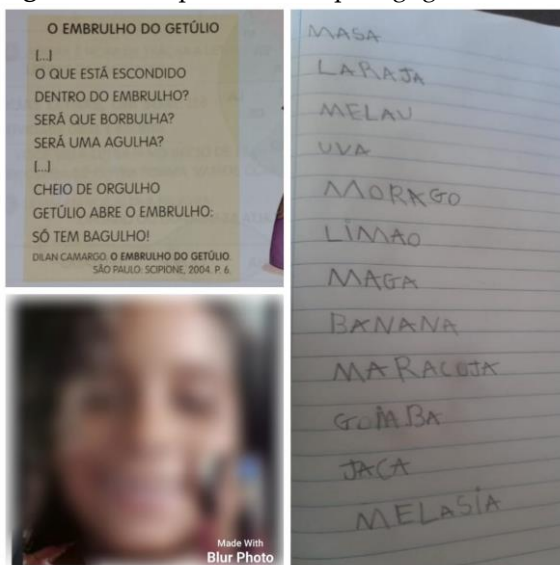 O EMBRULHO DO GETÚLIO
[...]
O QUE ESTÁ ESCONDIDO
DENTRO DO EMBRULHO?
SERÁ QUE BORBULHA?
SERÁ UMA AGULHA?
[...]
CHEIO DE ORGULHO
GETÚLIO ABRE O EMBRULHO:
SÓ TEM BAGULHO!
DILAN CAMARGO. O EMBRULHO DO GETÚLIO.
SÃO PAULO: SCIPIONE, 2004. P. 6.
MASA
LARAJA
MELAU
UVA
MORAGO
LIMAO
MAGA
BANANA
MARACUJA
GOIABA
JACA
MELASIA
Made With
Blur Photo